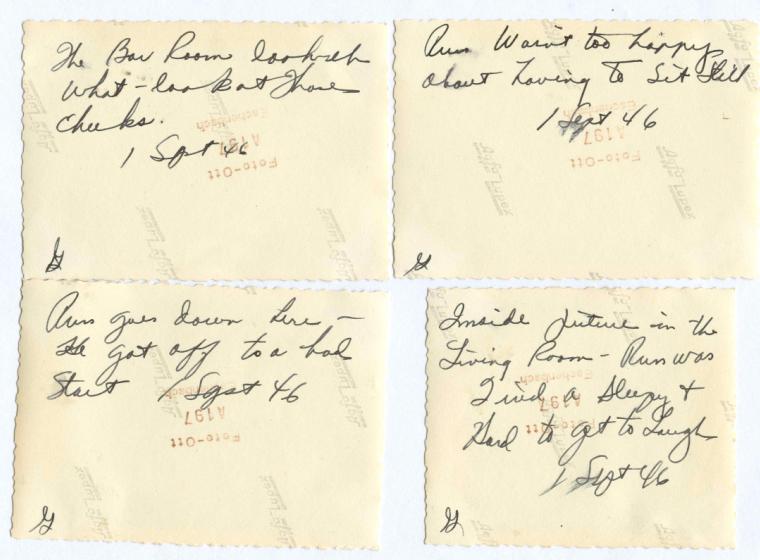 The Bar Room look
what - look at those
cheeks.
1 Spt 46
Eschenbach
A197
Foto-Ott
Agfa Lupex
G
Russ Wasn't too happy
about having to Sit Still
1 Sept 46
Eschenbach
A197
Foto-Ott
Agfa Lupex
G
Russ goes down here -
He got off to a bad
Start 1 Sept 46
Eschenbach
A197
Foto-Ott
Agfa Lupex
G
Inside picture - in the
Living Room - Russ was
Tired & Sleepy &
Hard to get to Laugh
1 Sept 46
Eschenbach
A197
Foto-Ott
Agfa Lupex
G